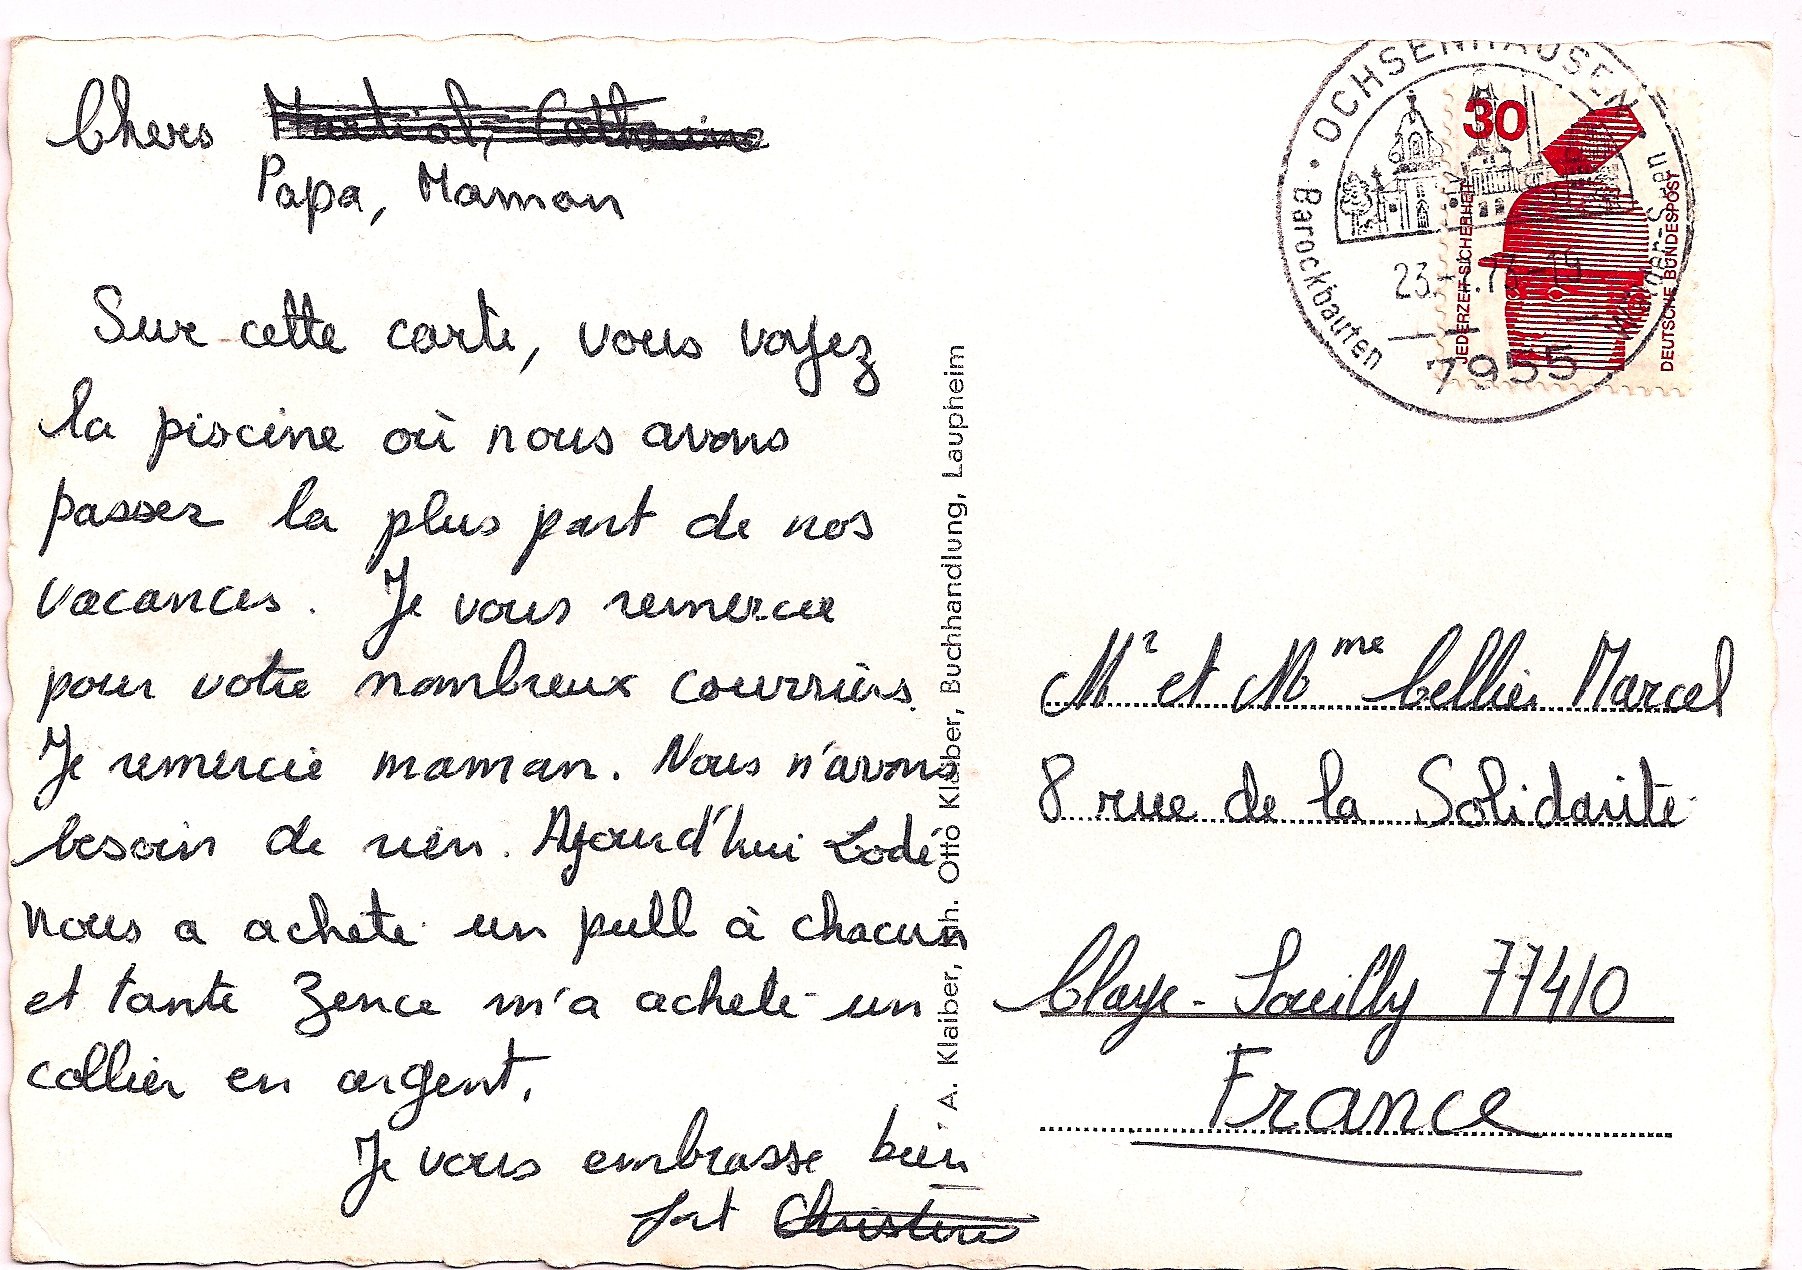 Chers Martial, Catherine
Papa, Maman
Sur cette carte, vous voyez
la piscine où nous avons
passer la plus part de nos
vacances. Je vous remercie
pour votre nombreux courriers.
Je remercie maman. Nous n'avons
besoin de rien. Ajourd'hui Lodé
nous a acheté un pull à chacun
et tante Zence m'a acheté un
collier en argent.
Je vous embrasse bien
fort Christine
A. Klaiber, Inh. Otto Klaiber, Buchhandlung, Laupheim
OCHSENHAUSEN
Barockbauten
23. 7.73-19
7955
30
JEDERZEIT SICHERHEIT
DEUTSCHE BUNDESPOST
Mr et Mme Cellier Marcel
8 rue de la Solidarité
Claye-Souilly 77410
France